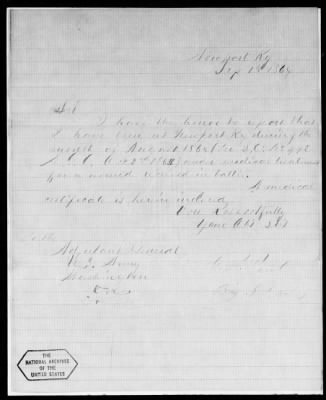 Newport Ky
Sep 1st 1864
Sir
I have the honor to report that
I have been at Newport Ky during the
month of August 1864
under medical treatment
for a wound received in battle.
A medical
certificate is herein inclosed
Very Respectfully
Your Obt Svt
Adjutant General
Army
Washington
THE
NATIONAL ARCHIVES
OF THE
UNITED STATES